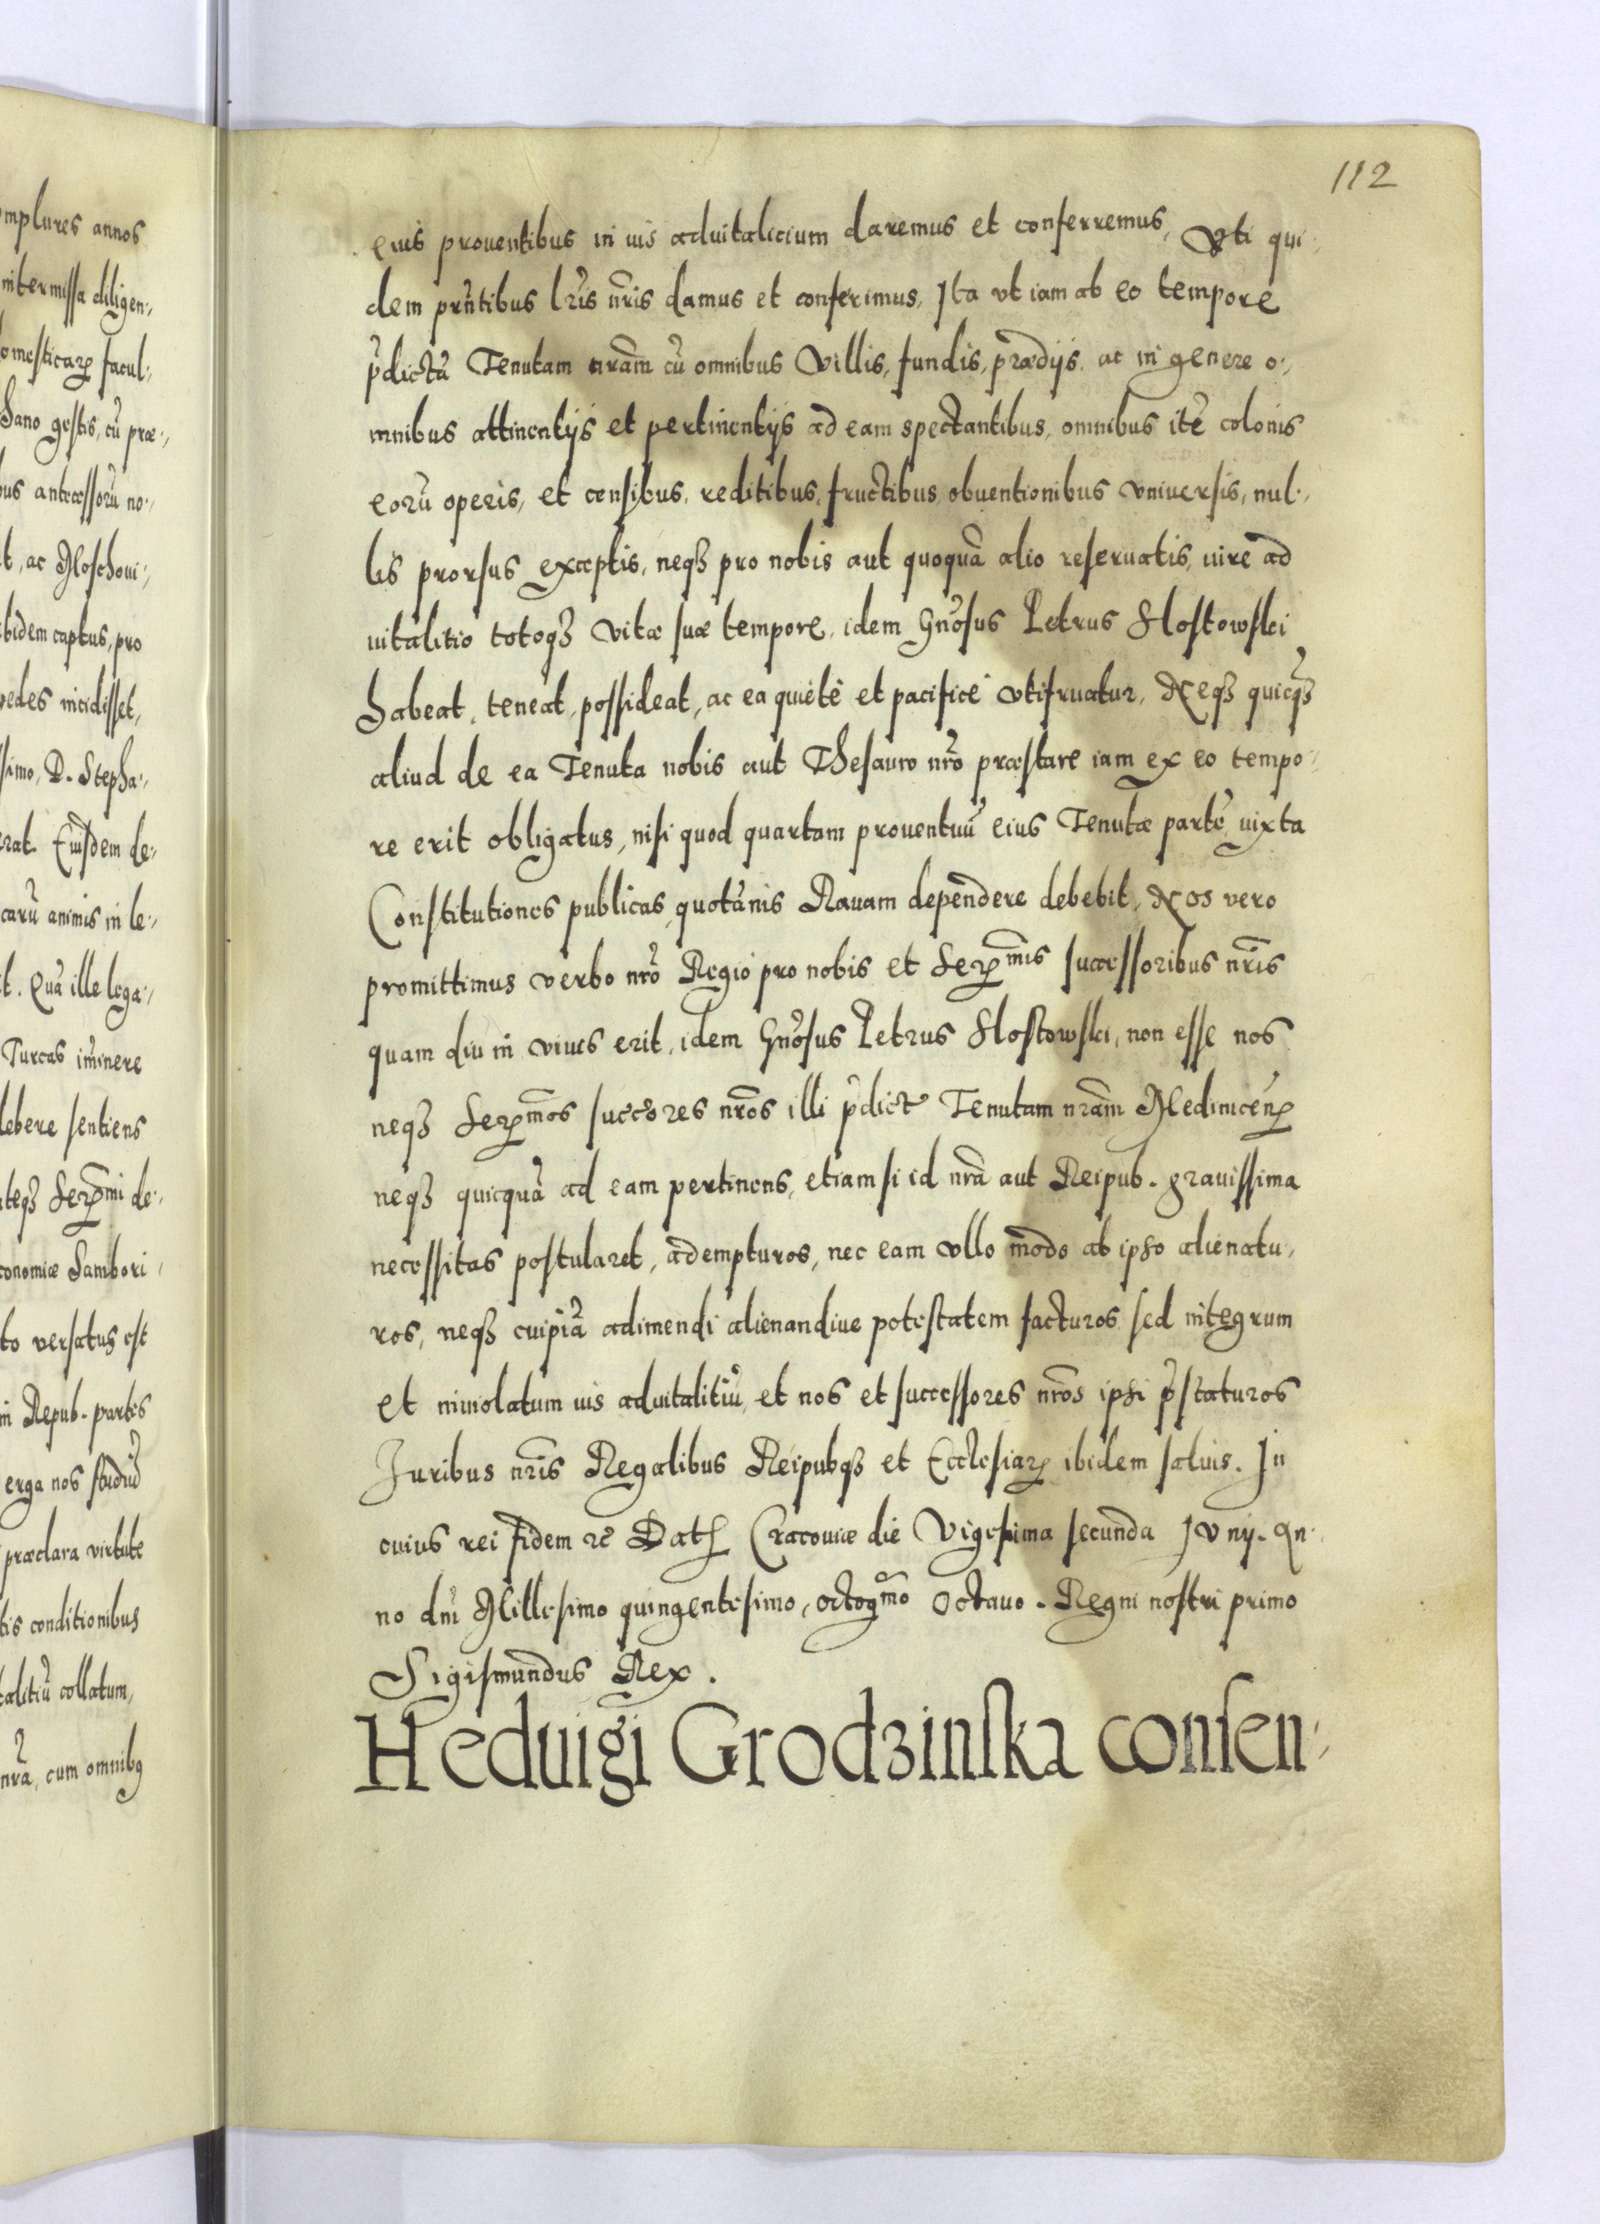 112
omplures annos
intermissa diligen-,
omesticarꝝ facul-,
hano gestis, cū præ-,
bus antecessorū no-,
t, ac Moschoui-,
ibidem captus, pro
pedes incidisset,
simo, D. Stepha-,
erat. Eiusdem de-,
carū animis in le-,
it. Quā ille lega-,
Turcas iminere
debere sentiens
atqȝ Serꝝmi de-,
conomiæ Sambori-,
to versatus est
in Repub. partes
erga nos studiū
præclara virtute
tis conditionibus
talitiū collatum,
nr̄a, cum omnibꝯ
eius prouentibus in ius aduitalicium daremus et conferremus, Vti qui-,
dem pr̄ntibus lr̄is nr̄is damus et conferimus, Ita vt iam ab eo tempore
p̄dictā Tenutam nr̄am cū omnibus Villis, fundis, prædijs, ac in genere o-,
mnibus attinentijs et pertinentijs ad eam spectantibus, omnibus itē colonis
eorū operis, et censibus, reditibus, fructibus, obuentionibus vniuersis, nul-,
lis prorsus exceptis, neqȝ pro nobis aut quoquā alio reseruatis, iure ad
uitalitio totoqȝ vitæ suæ tempore, idem Gn̄osus Petrus Slostowski
habeat, teneat, possideat, ac ea quiete et pacifice vtifruatur, Neqȝ quicqȝ
aliud de ea Tenuta nobis aut Thesauro nr̄o præstare iam ex eo tempo-,
re erit obligatus, nisi quod quartam prouentuū eius Tenutæ partē iuxta
Constitutiones publicas quotānis Rauam dependere debebit, Nos vero
promittimus verbo nr̄o Regio pro nobis et Serꝝmis successoribus nr̄is
quam diu in viuis erit, idem Gn̄osus Petrus Slostowski, non esse nos
neqȝ Serꝝmos succ̄ores nr̄os illi p̄dict Tenutam nr̄am Medinicen̄ꝝ
neqȝ quicquā ad eam pertinens, etiamsi id nr̄a aut Reipub. grauissima
necessitas postularet, adempturos, nec eam vllo modo ab ipso alienatu-,
ros, neqȝ cuipiā adimendi alienandiue potestatem facturos sed integrum
et inuiolatum ius aduitalitiū, et nos et successores nr̄os ipsi p̄staturos
Juribus nr̄is Regalibus Reipubqȝ et Ecclesiarꝝ ibidem saluis. In
cuius rei fidem ꝛc Datꝭ Cracouiæ die Vigesima secunda Iunij. An-
no dn̄i Millesimo quingentesimo, octogmo Octauo. Regni nostri primo
Sigismundus Rex.
Heduigi Grodzinska consen-,